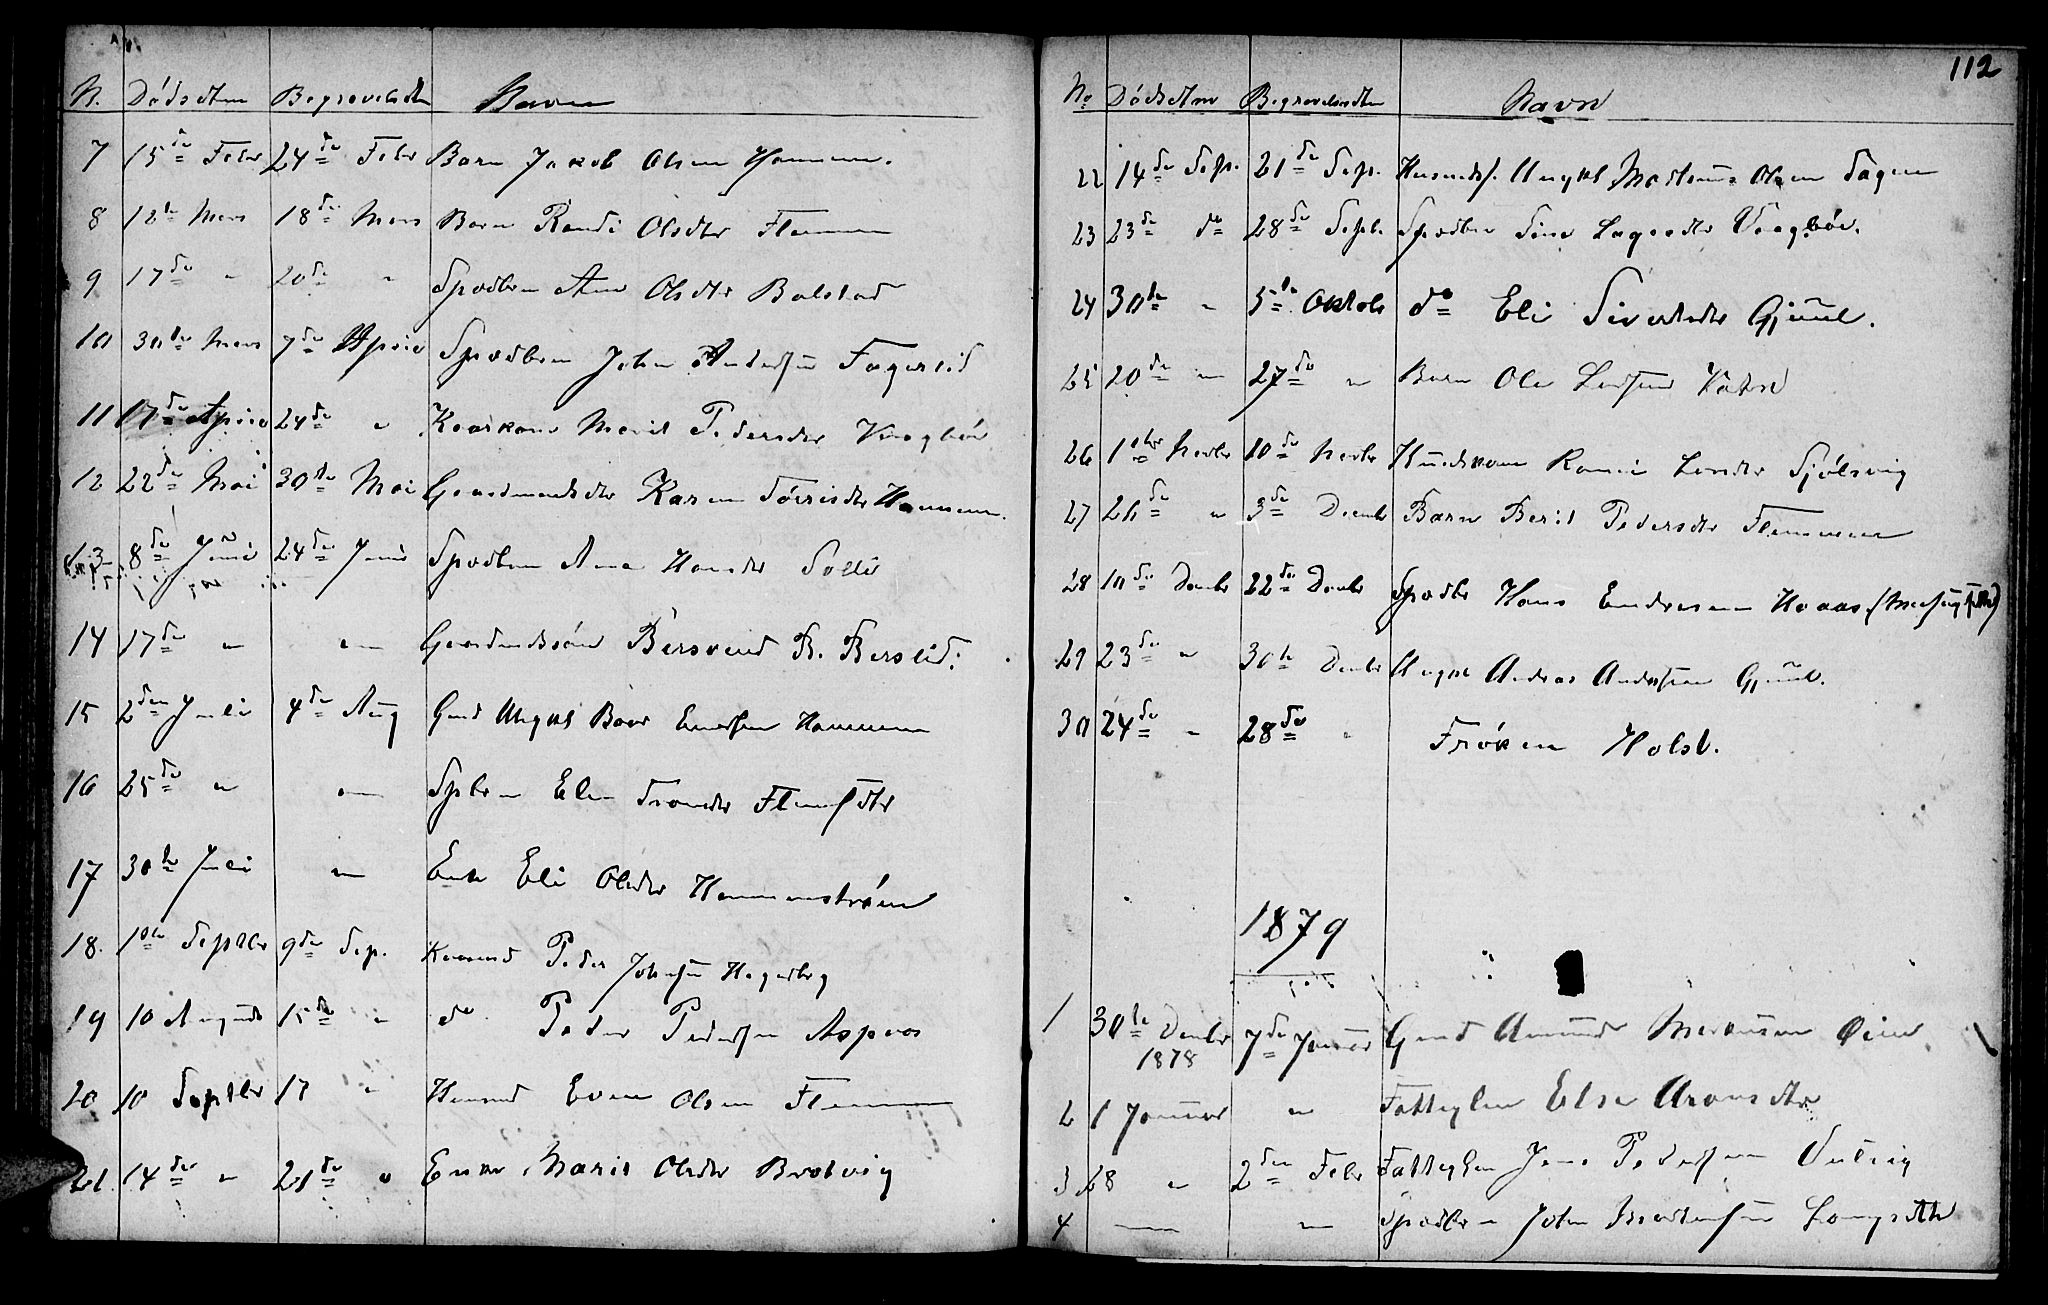 N. Dødsdtm Begravelsdtm Navn
7 15de Febr 24de Febr Barn Jakob Olsen Hammen.
8 12te Mars 18de Mars Barn Randi Olsdtr Flemmen
9 17de " 20de " Spædbrn Ane Olsdtr Bolstad
10 30te Mars 7de April Spædbrn John Andersen Fagerlid
11 17de April 24de " Kaarkone Marit Pedersdtr Vaagbøe
12 22de Mai 30te Mai Gaardmandsdtr Karen Tørrisdtr Hammen.
13 8de Juni 24de Juni Spædbrn Ane Hansdtr Solli
14 17de " " Gaardmdssøn Bersvend B. Berslid.
15 2den Juli 4de Aug Gmd Ungkl Baar Einersen Hammen
16 25de " " Spbrn Elen Trondtr
17 30te Juli " Enke Eli Olsdtr Hammenstrøen
18. 1ste Septbr 9de Sep. Kaarmd Peder Johnsen Hagerberg
19 10 August 15de " do Peder Pedersen Aspaas
20 10 Septbr 17 " Huusmd Even Olsen Flemmen
21. 14de " 21de " Enke Marit Olsdtr Brøtvig
112
No Dødsdtm Begravelsesdtm Navn
22 14de Sep. 21de Sep. Ungkl Olsen Fagen
23 23de do 28de Septr. Spædbrn Vaagbøe.
24 30te " 5te Oktobr do Eli Sivertsdtr Gjuul.
25 20de " 27de " Barn Ole Larsen
26 1ste Novbr 10de Novbr Larsdtr Sjølsvig
27 26de " 3de Decmbr Barn Berit Pedersdtr Flemmen
28 10de Decmbr 22de Decmbr Spædbr Hans Endresen Hoaas
29 23de " 30te Decmbr Ungkl Andras Andersen Gjuul.
30 24de " 28de " Frøken Holst.
1879
1 30te Decmbr 1878 7de Januar Gmd Amund Markusen Øien
2 1 Januar " Fattiglem Else Aronsdtr
3 28 " 2den Febr Fattiglem Jens Pedersen
4 " " Spædbrn John Mortensen